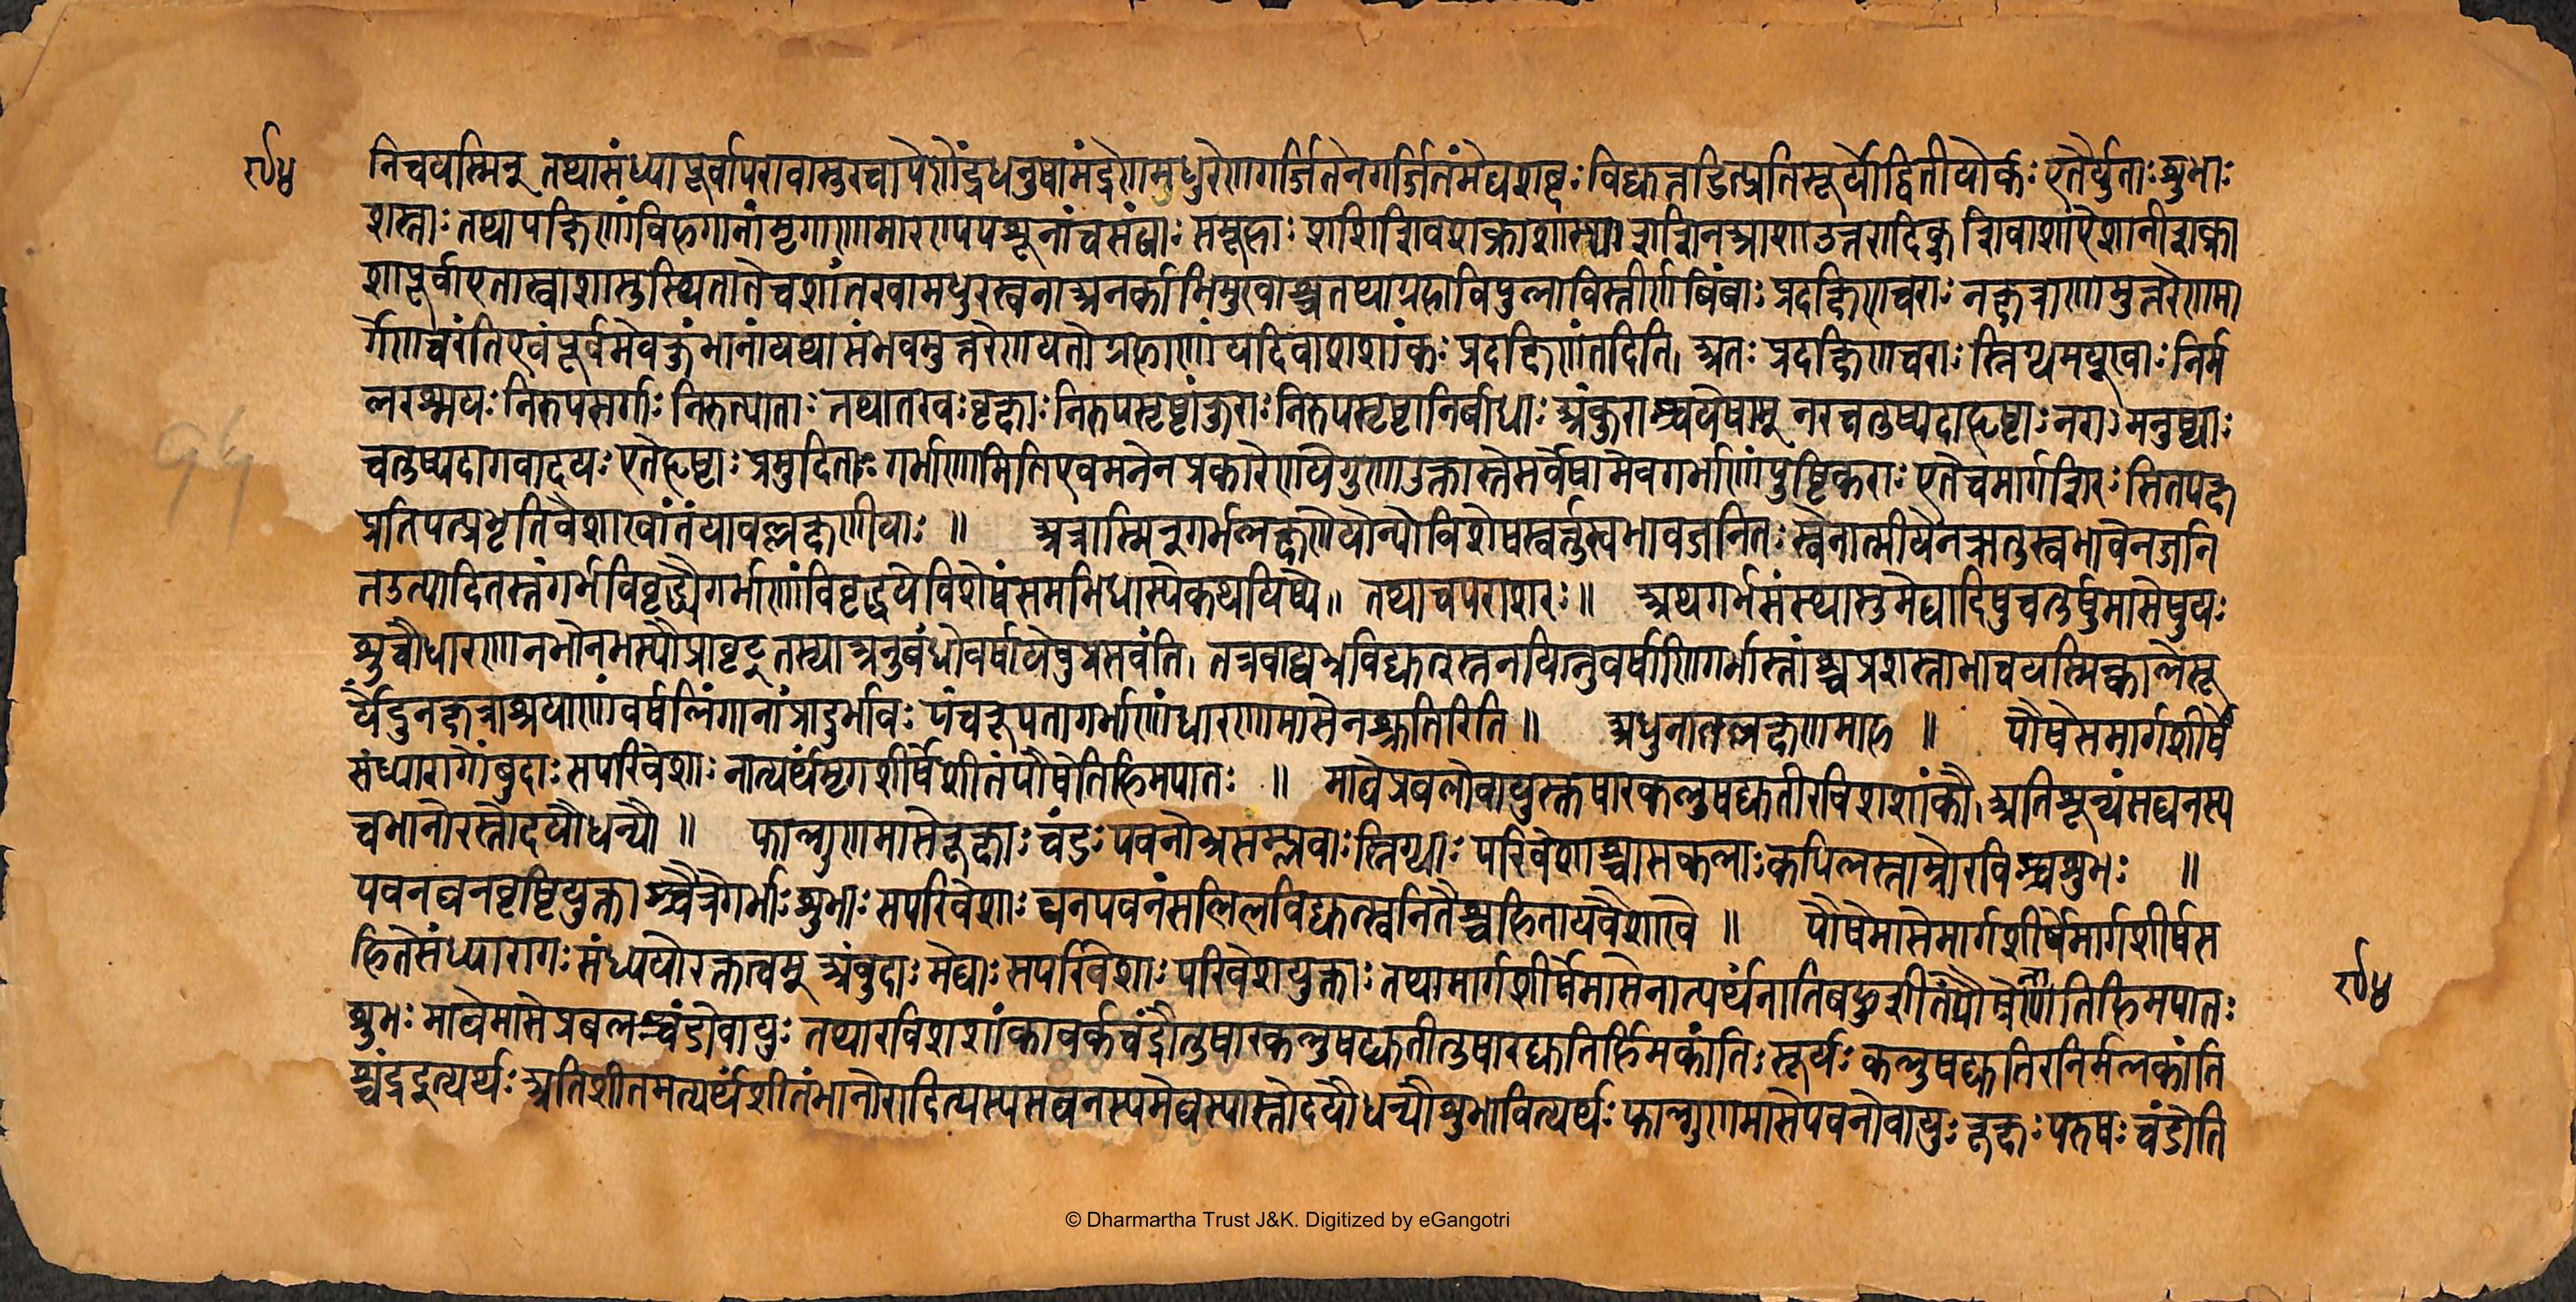 निचयस्मिन् तथासंध्यापूर्वापरावासुरचापेणेंद्रधनुषामंद्रेणमधुरेणगर्जितेनगर्जितंमेघशब्दःविद्युत्तडित्प्रतिसूर्योद्वितीयोर्कः एतैर्युताःशुभाः
शस्ताःतथापक्षिणांविहगानांमृगाणामारण्यपशूनांचसंघाःसमूहाःशशिशिवशक्राशास्थाशशिनआशाउत्तरादिक्शिवाशाऐशानीशक्रा
शापूर्वाएतास्वाशासुस्थितातेचशांतरवामधुरस्वनाअनर्काभिमुखाश्चतथाग्रहाविपुलाविस्तीर्णबिंबाःप्रदक्षिणचराःनक्षत्राणामुत्तरेणमा
र्गेणचरंतिएवंपूर्वमेवक्तुंभानांयथासंभवमुत्तरेणयतोग्रहाणांयदिवाशशांकःप्रदक्षिणंतदिति। अतःप्रदक्षिणचराःस्निग्धमयूखाःनिर्म
लरश्मयःनिरुपसर्गाःनिरुत्पाताःतथातरवःवृक्षाःनिरुपसृष्टांकुराःनिरुपसृष्टानिर्बाधाःअंकुराश्चयेषाम् नरचतुष्पदाहृष्टाःनराःमनुष्याः
चतुष्पदागवादयःएतेहृष्टाःप्रमुदिताःगर्भाणामितिएवमनेनप्रकारेणयेगुणाउक्तास्तेसर्वेषामेवगर्भाणांपुष्टिकराःएतेचमार्गशिरःसितपक्ष
प्रतिपत्प्रभृतिवैशाखांतंयावल्लक्षणीयाः ॥ अत्रास्मिन्गर्भलक्षणेयोन्योविशेषस्वर्तुस्वभावजनितःस्वेनात्मीयेनऋतुस्वभावेनजनि
तउत्पादितस्तंगर्भविवृद्ध्यैगर्भाणांविवृद्धयेविशेषंसमभिधास्येकथयिष्ये॥ तथाचपराशरः॥ अथगर्भसंस्थास्तुमेघादिषुचतुर्षुमासेषुयः
शुचौधारणनभोनभस्यौप्रावृट् तस्याअनुबंधोवर्षायेषुप्रसवंति। तत्रवाय्वभ्रविद्युत्स्तनयित्नुवर्षाणिगर्भास्तांश्चप्रशस्ताभाचयस्मिन्कालेसू
र्येंदुनक्षत्राश्रयाणांवर्षलिंगानांप्रादुर्भावःपंचरूपतागर्भाणांधारणमासेनश्रुतिरिति॥ अधुनातल्लक्षणमाह ॥ पौषेसमार्गशीर्षे
संध्यारागोंबुदाःसपरिवेशाःनात्यर्थंमृगशीर्षेशीतंपौषेतिहिमपातः ॥ माघेप्रबलोवायुस्तुषारकलुषद्युतीरविशशांकौ। अतिशून्यंसघनस्य
चभानोरस्तोदयौधन्यौ ॥ फाल्गुणमासेरूक्षाःचंडःपवनोभ्रसम्प्लवाःस्निग्धाःपरिवेशाश्चासकलाःकपिलस्ताम्रोरविश्चशुभः ॥
पवनघनवृष्टियुक्ताश्चैत्रेगर्भाःशुभाःसपरिवेशाःघनपवनसलिलविद्युत्स्वनितैश्चहितायवैशाखे ॥ पौषेमासेमार्गशीर्षेमार्गशीर्षस
हितेसंध्यारागःसंध्ययोरक्तत्वम् अंबुदाःमेघाःसपरिवेशाःपरिवेशयुक्ताःतथामार्गशीर्षेमासेनात्यर्थंनातिबहुशीतंपौषेणातिहिमपातः
शुभःमाघेमासेप्रबलश्चंडोवायुःतथारविशशांकावर्कचंद्रौतुषारकलुषद्युतीतुषारद्युतिर्हिमकांतिःसूर्यःकलुषद्युतिरनिर्मलकांति
श्चंद्रइत्यर्थःअतिशीतमत्यर्थंशीतंभानोरादित्यस्यसघनस्यमेघस्यास्तोदयौधन्यौशुभावित्यर्थःफाल्गुणमासेपवनोवायुःरूक्षःपरुषःचंडोति
१५
© Dharmartha Trust J&K. Digitized by eGangotri